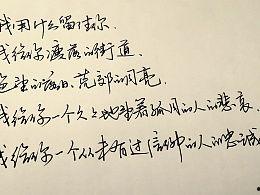 我用什么留住你.
我给你瘦落的街道、
绝望的落日、荒郊的月亮.
我给你一个久久地望着孤月的人的悲哀.
我给你一个从未有过信仰的人的忠诚